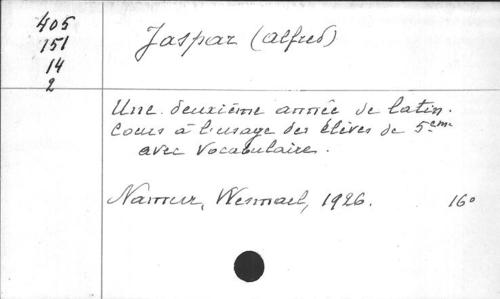 405
151
14
2
Jaspar (Alfred)
Une deuxième année de latin.
Cours à l'usage des élèves de 5em
avec vocabulaire.
Namur, Wesmael, 1926. 16°